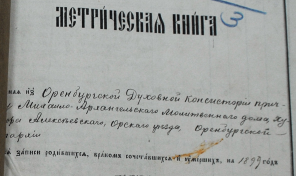 МЕТРИЧЕСКАЯ КНИГА
3
ная из Оренбургской Духовной Консистории прич-
Михаило-Архангельского Молитвенного дома, ху-
ра Алексеевского, Орскаго уезда, Оренбургской
для записи родившихся, бракомъ сочетавшихся и умершихъ, на 1897 годъ